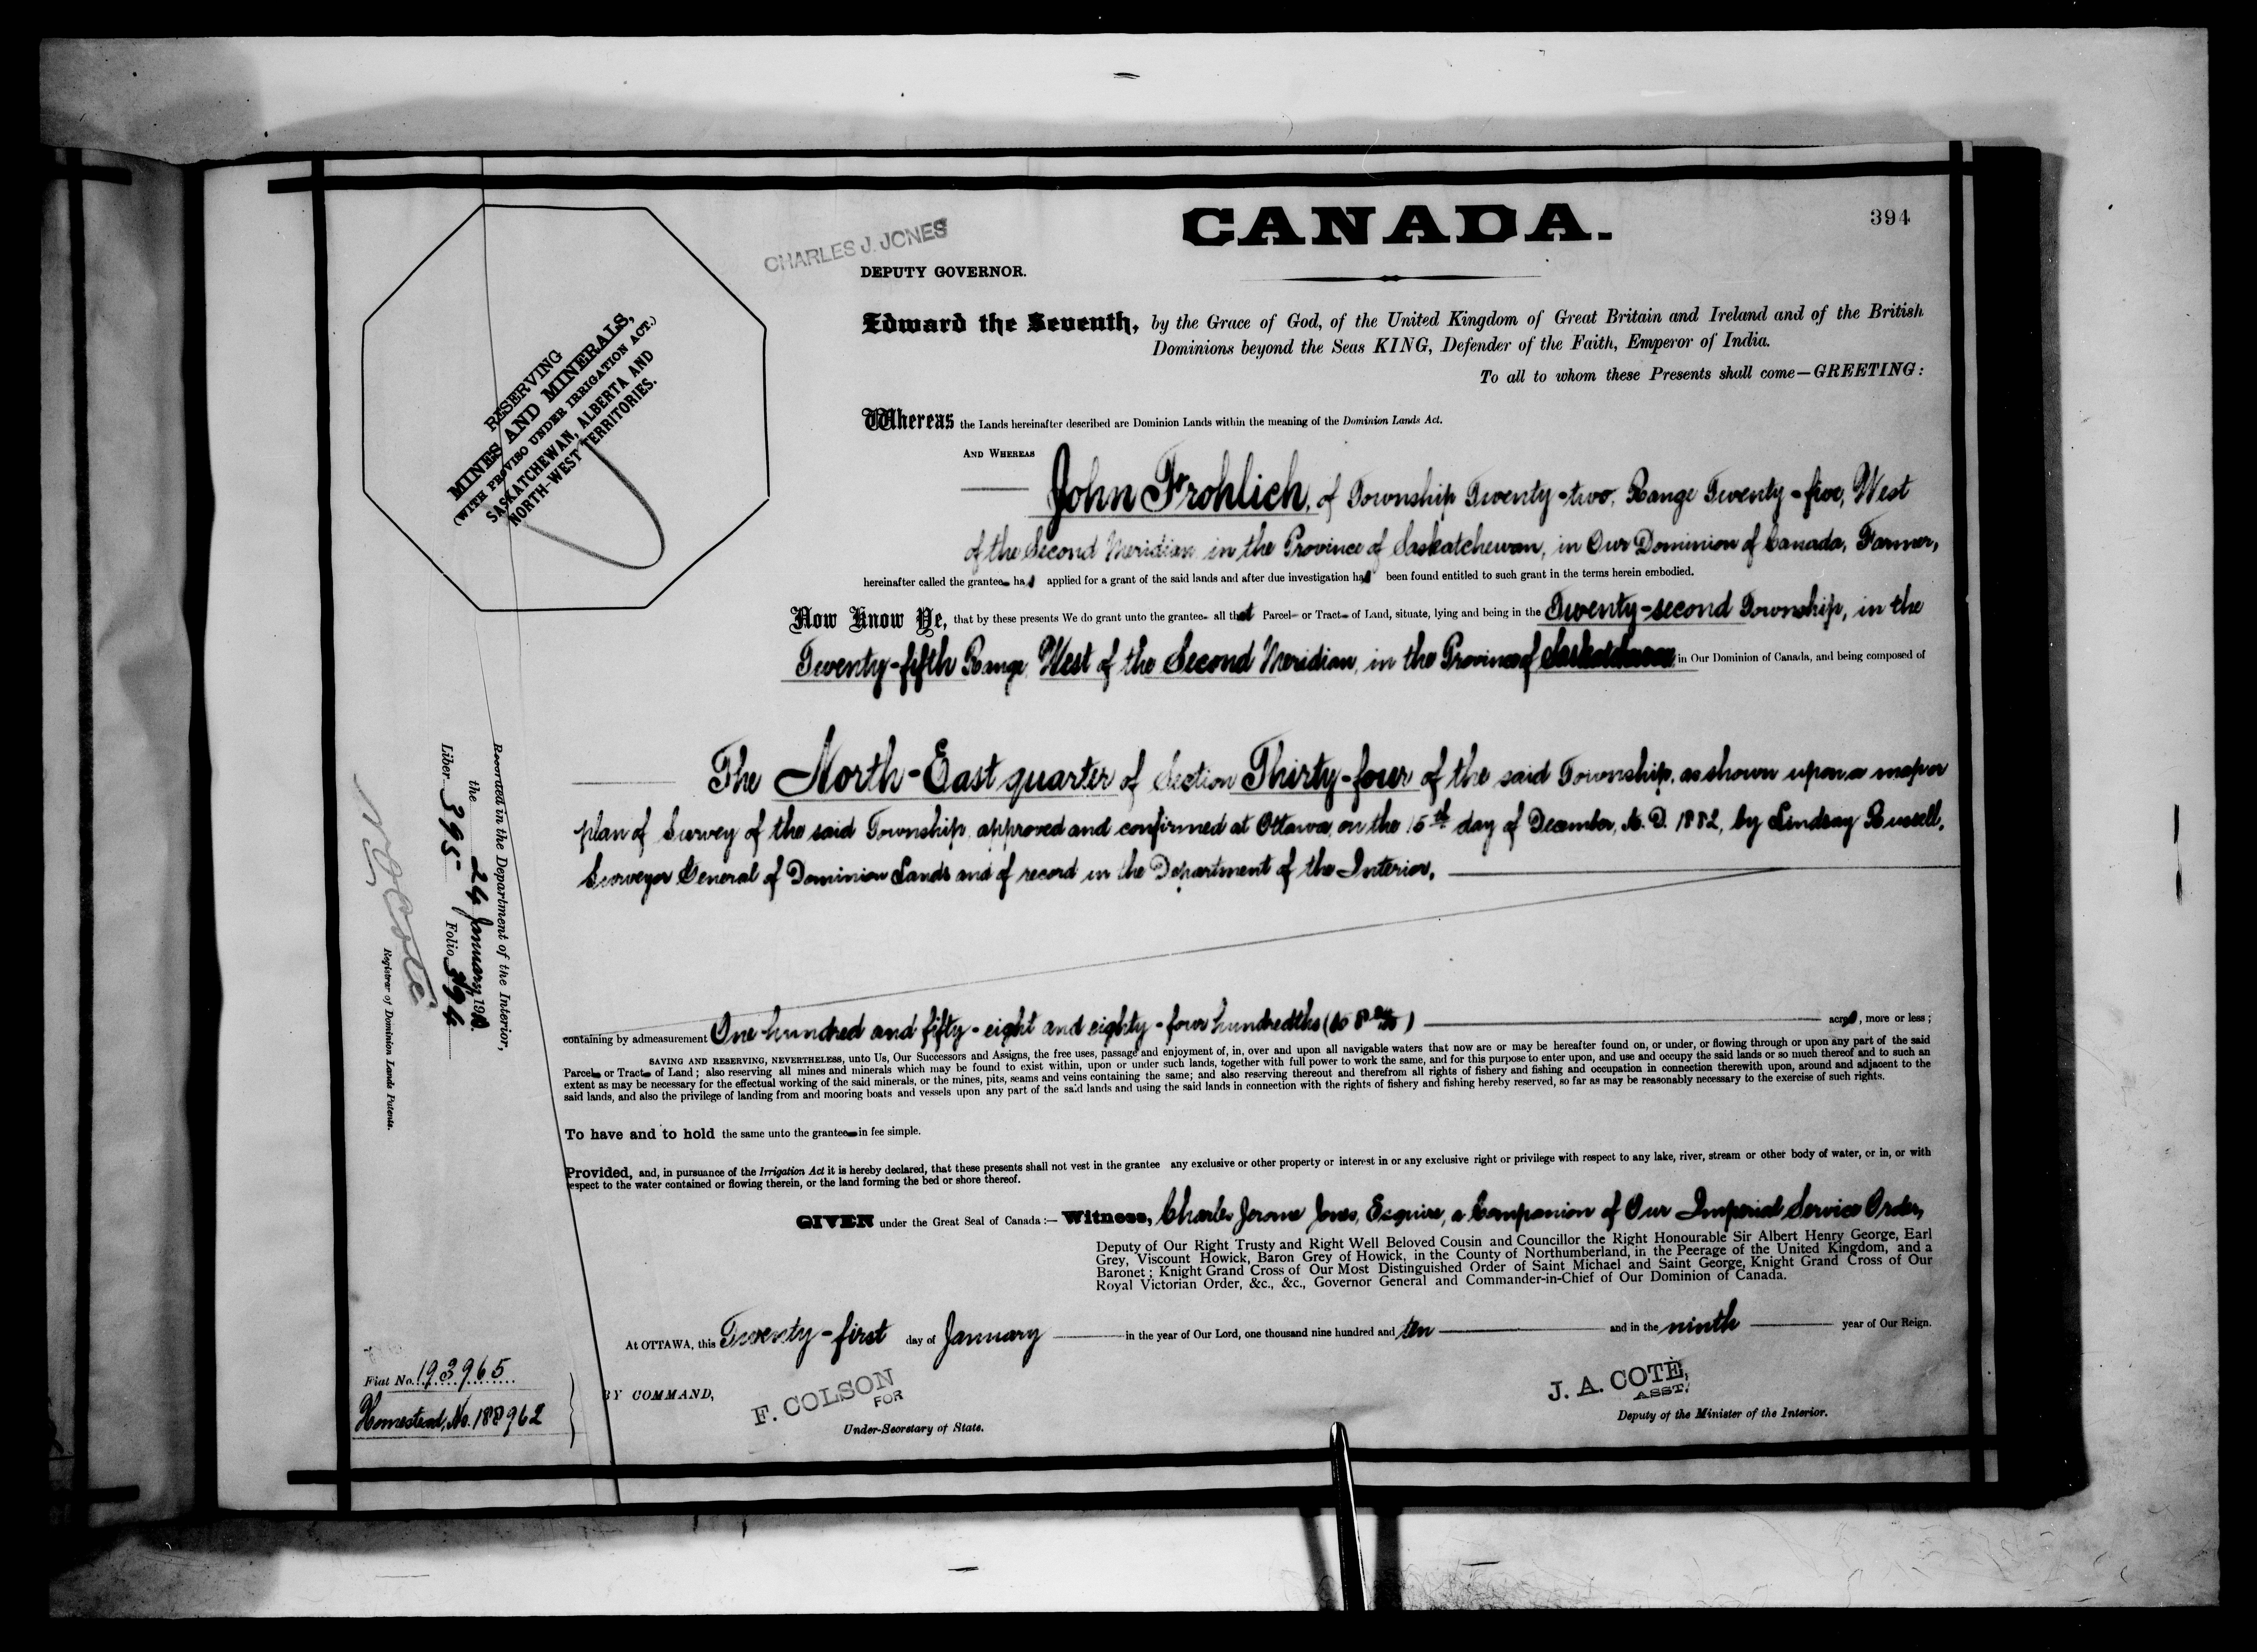 CANADA.
394
CHARLES J. JONES
DEPUTY GOVERNOR.
RESERVING
MINES AND MINERALS,
(WITH PROVISO UNDER IRRIGATION ACT.)
SASKATCHEWAN, ALBERTA AND
NORTH-WEST TERRITORIES.
Edward the Seventh, by the Grace of God, of the United Kingdom of Great Britain and Ireland and of the British
Dominions beyond the Seas KING, Defender of the Faith, Emperor of India.
To all to whom these Presents shall come—GREETING:
Whereas the Lands hereinafter described are Dominion Lands within the meaning of the Dominion Lands Act.
AND WHEREAS
John Frohlich, of Township Twenty-two, Range Twenty-five, West
of the Second Meridian in the Province of Saskatchewan, in Our Dominion of Canada, Farmer,
hereinafter called the grantee has applied for a grant of the said lands and after due investigation has been found entitled to such grant in the terms herein embodied.
Now Know Ye, that by these presents We do grant unto the grantee all that Parcel or Tract of Land, situate, lying and being in the Twenty-second Township, in the
Twenty-fifth Range, West of the Second Meridian, in the Province of Saskatchewan in Our Dominion of Canada, and being composed of
The North-East quarter of Section Thirty-four of the said Township, as shown upon a map or
plan of Survey of the said Township, approved and confirmed at Ottawa, on the 15th day of December, A. D. 1882, by Lindsay Russell,
Surveyor General of Dominion Lands and of record in the Department of the Interior.
containing by admeasurement One hundred and fifty-eight and eighty-four hundredths acres, more or less;
SAVING AND RESERVING, NEVERTHELESS, unto Us, Our Successors and Assigns, the free uses, passage and enjoyment of, in, over and upon all navigable waters that now are or may be hereafter found on, or under, or flowing through or upon any part of the said
Parcel or Tract of Land; also reserving all mines and minerals which may be found to exist within, upon or under such lands, together with full power to work the same, and for this purpose to enter upon, and use and occupy the said lands or so much thereof and to such an
extent as may be necessary for the effectual working of the said minerals, or the mines, pits, seams and veins containing the same; and also reserving thereout and therefrom all rights of fishery and fishing and occupation in connection therewith upon, around and adjacent to the
said lands, and also the privilege of landing from and mooring boats and vessels upon any part of the said lands and using the said lands in connection with the rights of fishery and fishing hereby reserved, so far as may be reasonably necessary to the exercise of such rights.
To have and to hold the same unto the grantee in fee simple.
Provided, and, in pursuance of the Irrigation Act it is hereby declared, that these presents shall not vest in the grantee any exclusive or other property or interest in or any exclusive right or privilege with respect to any lake, river, stream or other body of water, or in, or with
espect to the water contained or flowing therein, or the land forming the bed or shore thereof.
GIVEN under the Great Seal of Canada:— Witness, Charles Jerome Jones, Esquire, a Companion of Our Imperial Service Order,
Deputy of Our Right Trusty and Right Well Beloved Cousin and Councillor the Right Honourable Sir Albert Henry George, Earl
Grey, Viscount Howick, Baron Grey of Howick, in the County of Northumberland, in the Peerage of the United Kingdom, and a
Baronet; Knight Grand Cross of Our Most Distinguished Order of Saint Michael and Saint George, Knight Grand Cross of Our
Royal Victorian Order, &c., &c., Governor General and Commander-in-Chief of Our Dominion of Canada.
At OTTAWA, this Twenty-first day of January in the year of Our Lord, one thousand nine hundred and ten and in the ninth year of Our Reign.
BY COMMAND,
F. COLSON
FOR
Under-Secretary of State.
J. A. COTÉ,
ASST.
Deputy of the Minister of the Interior.
Recorded in the Department of the Interior,
the 24 January 1910.
Liber 395 Folio 394
N O Coté
Registrar of Dominion Lands Patents.
Fiat No. 193965
Homestead, No. 188962